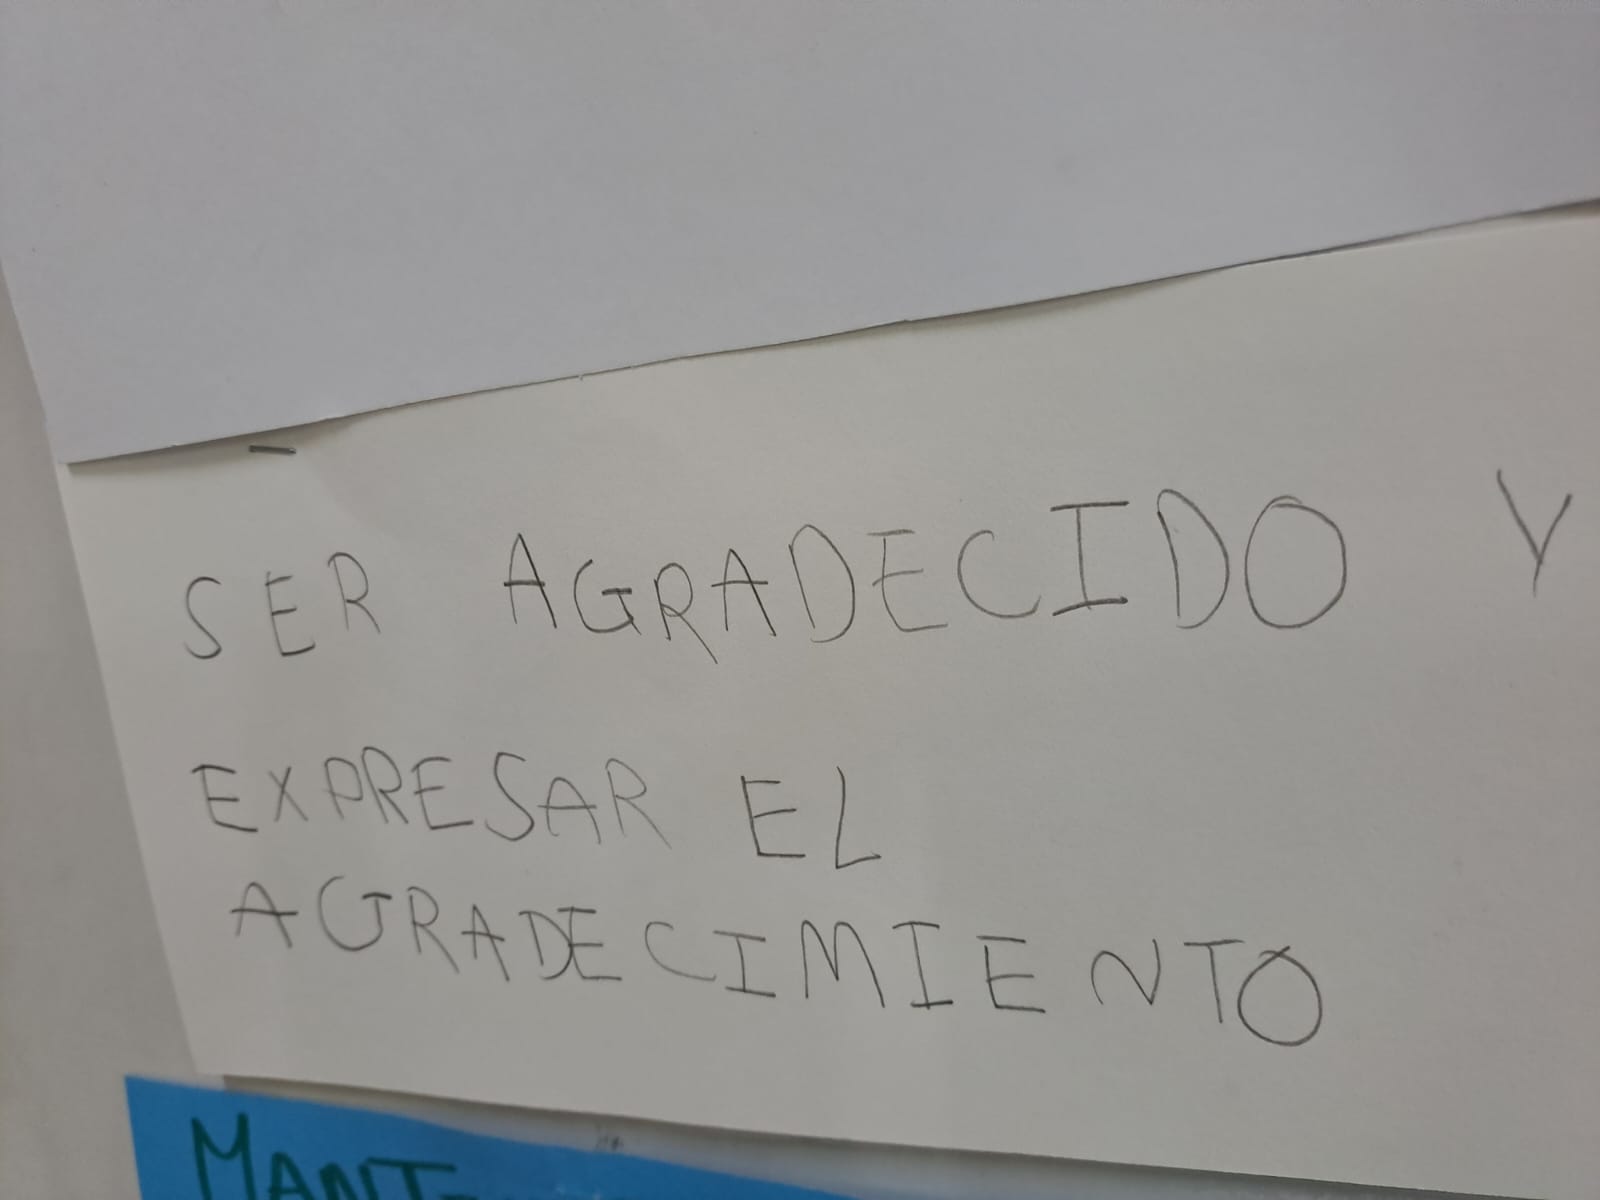 SER AGRADECIDO Y
EXPRESAR EL
AGRADECIMIENTO